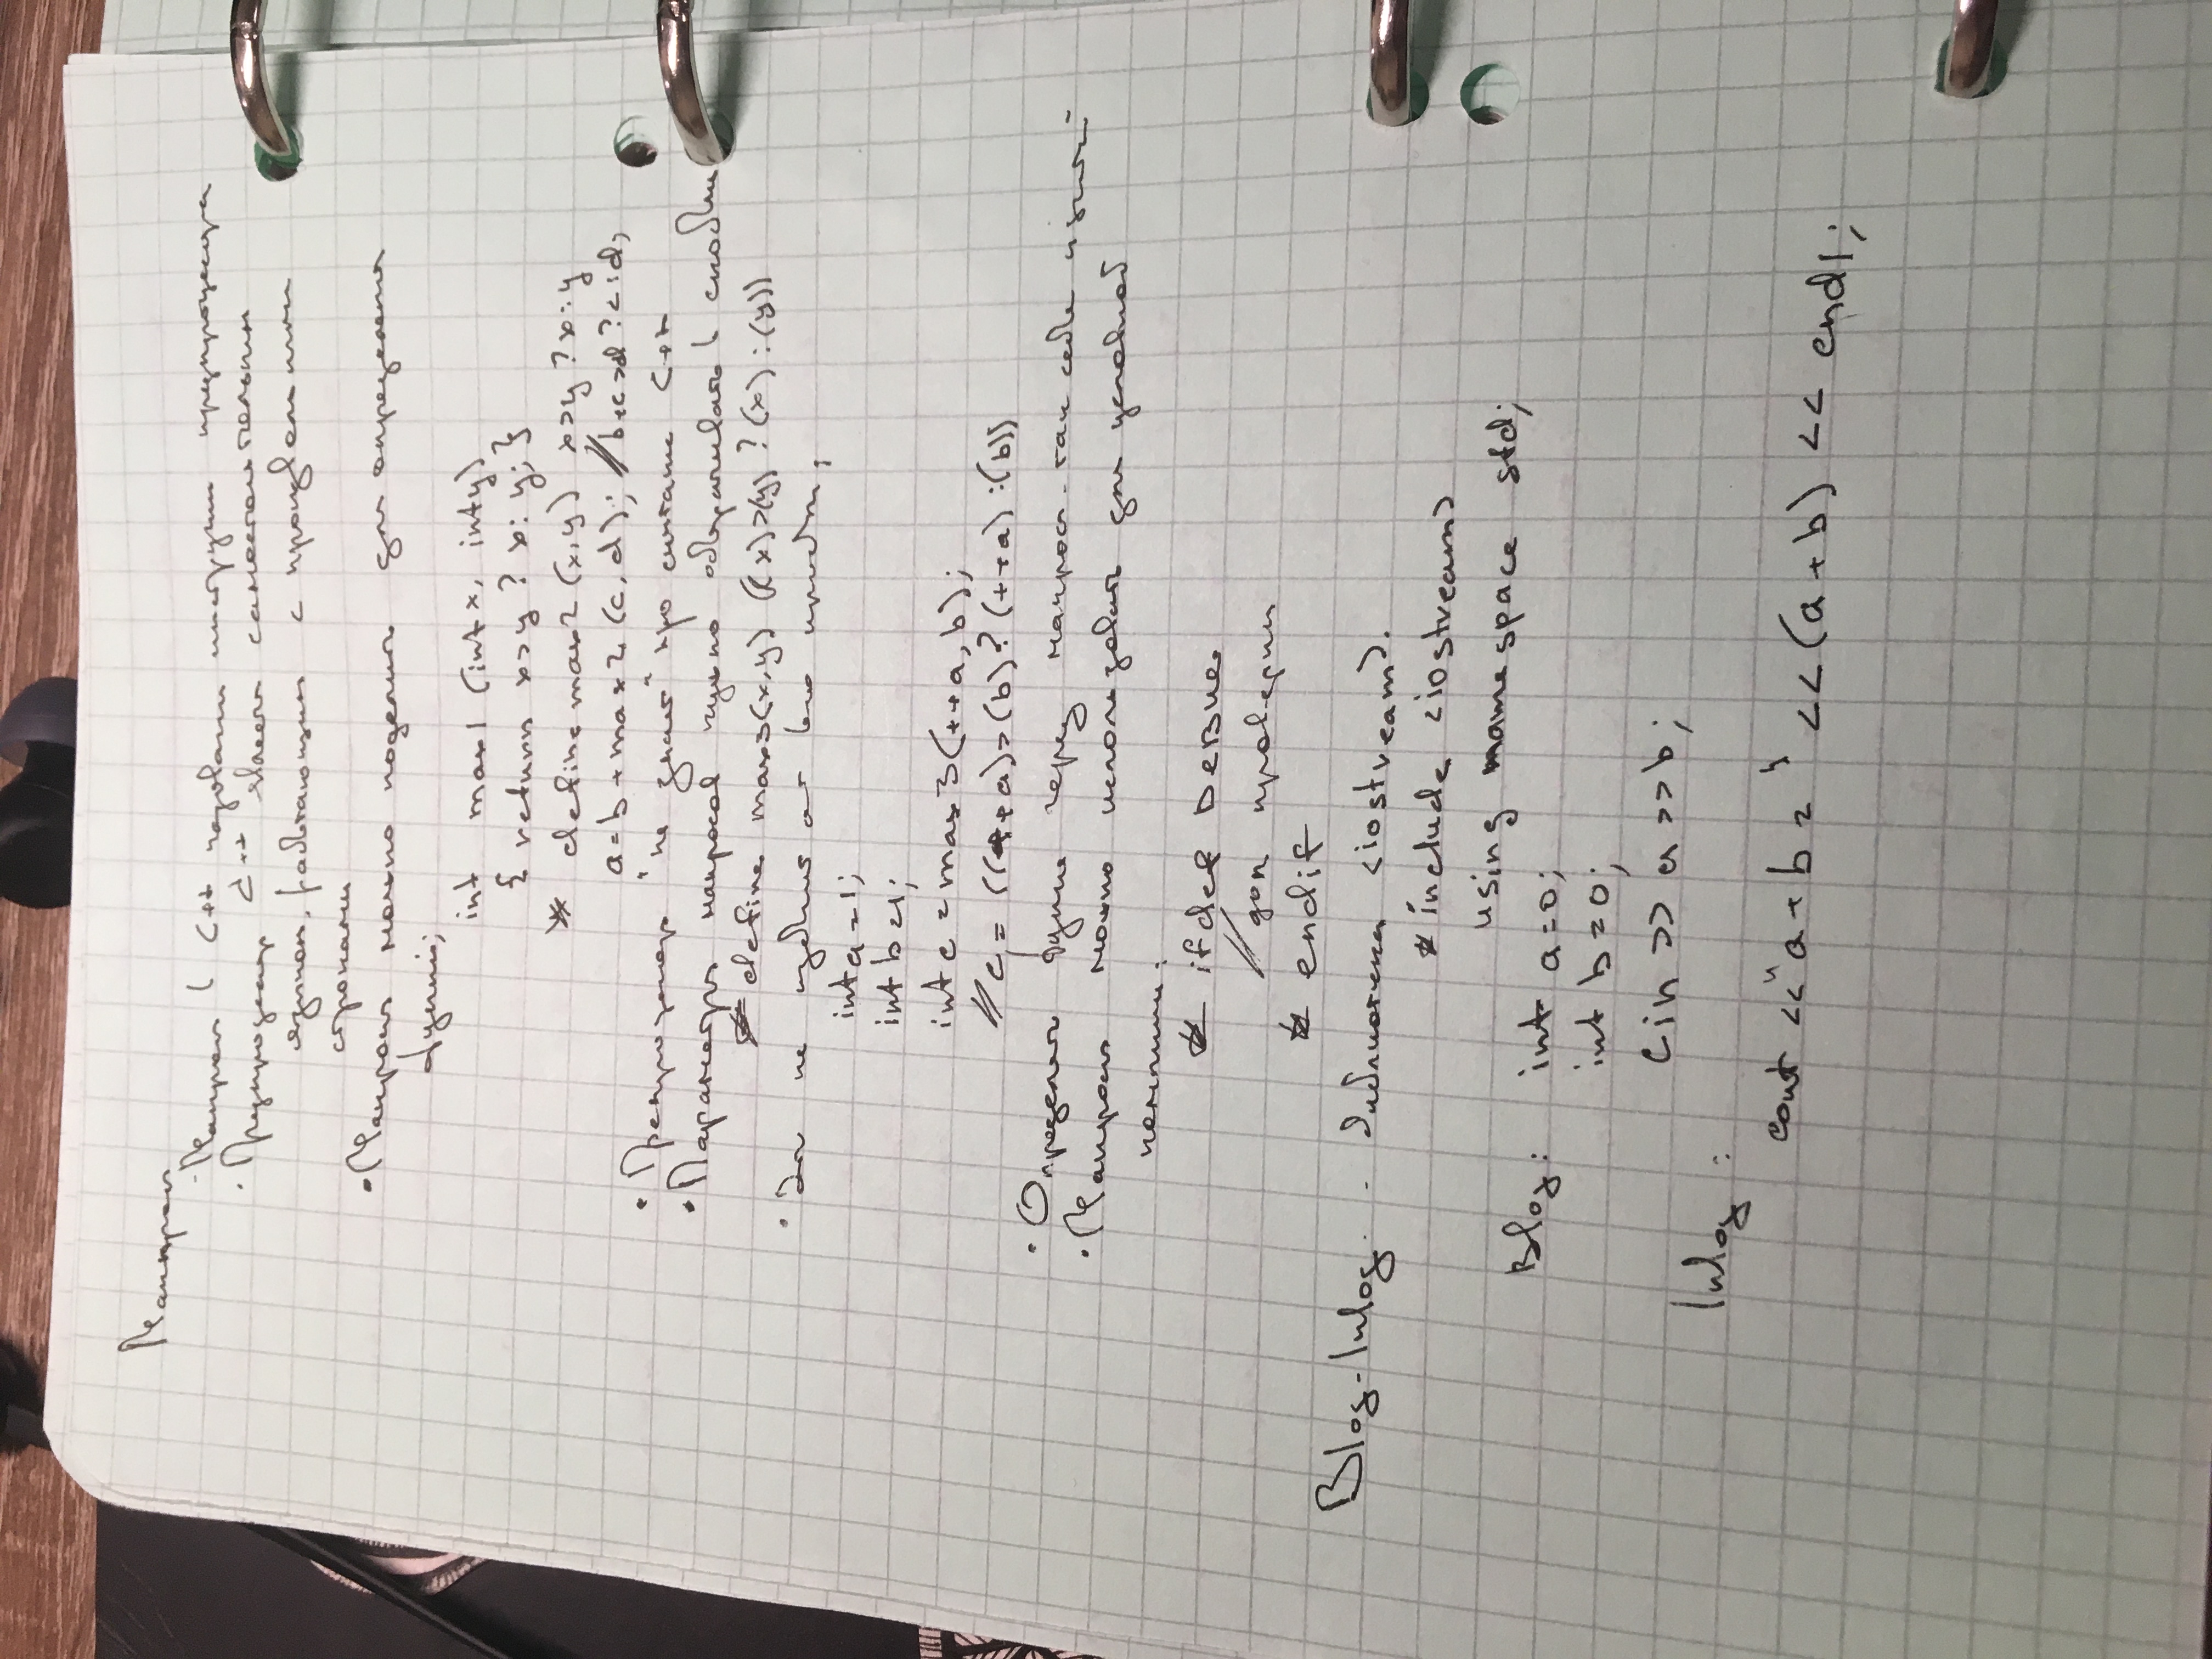 Макросы
· Макросы в C++ называют инструкции препроцессора
· Препроцессор C++ является самостоятельным
языком, работающим с произвольными
строками
· Макросы можно для определения
функций:
int max1 (int x, int y)
{ return x>y ? x : y; }
# define max2 (x,y) x>y ? x : y
a = b + max2 (c, d); // b+c>d ? c : d;
· Препроцессор "не знает" про синтаксис C++
· Параметры макросов нужно оборачивать в скобки
# define max3(x,y) ((x)>(y) ? (x) : (y))
· Это не избавит от всех проблем:
int a = 1;
int b = 1;
int c = max3(++a, b);
// c = ((++a)>(b) ? (++a) : (b))
· Определять функции через макросы - так себе
· Макросы можно использовать для условной
компиляции:
# ifdef DEBUG
// доп проверки
# endif
Ввод-Вывод. - библиотека <iostream>.
# include <iostream>
using namespace std;
Ввод: int a = 0;
int b = 0;
cin >> a >> b;
Вывод :
cout << "a + b = " << (a + b) << endl;